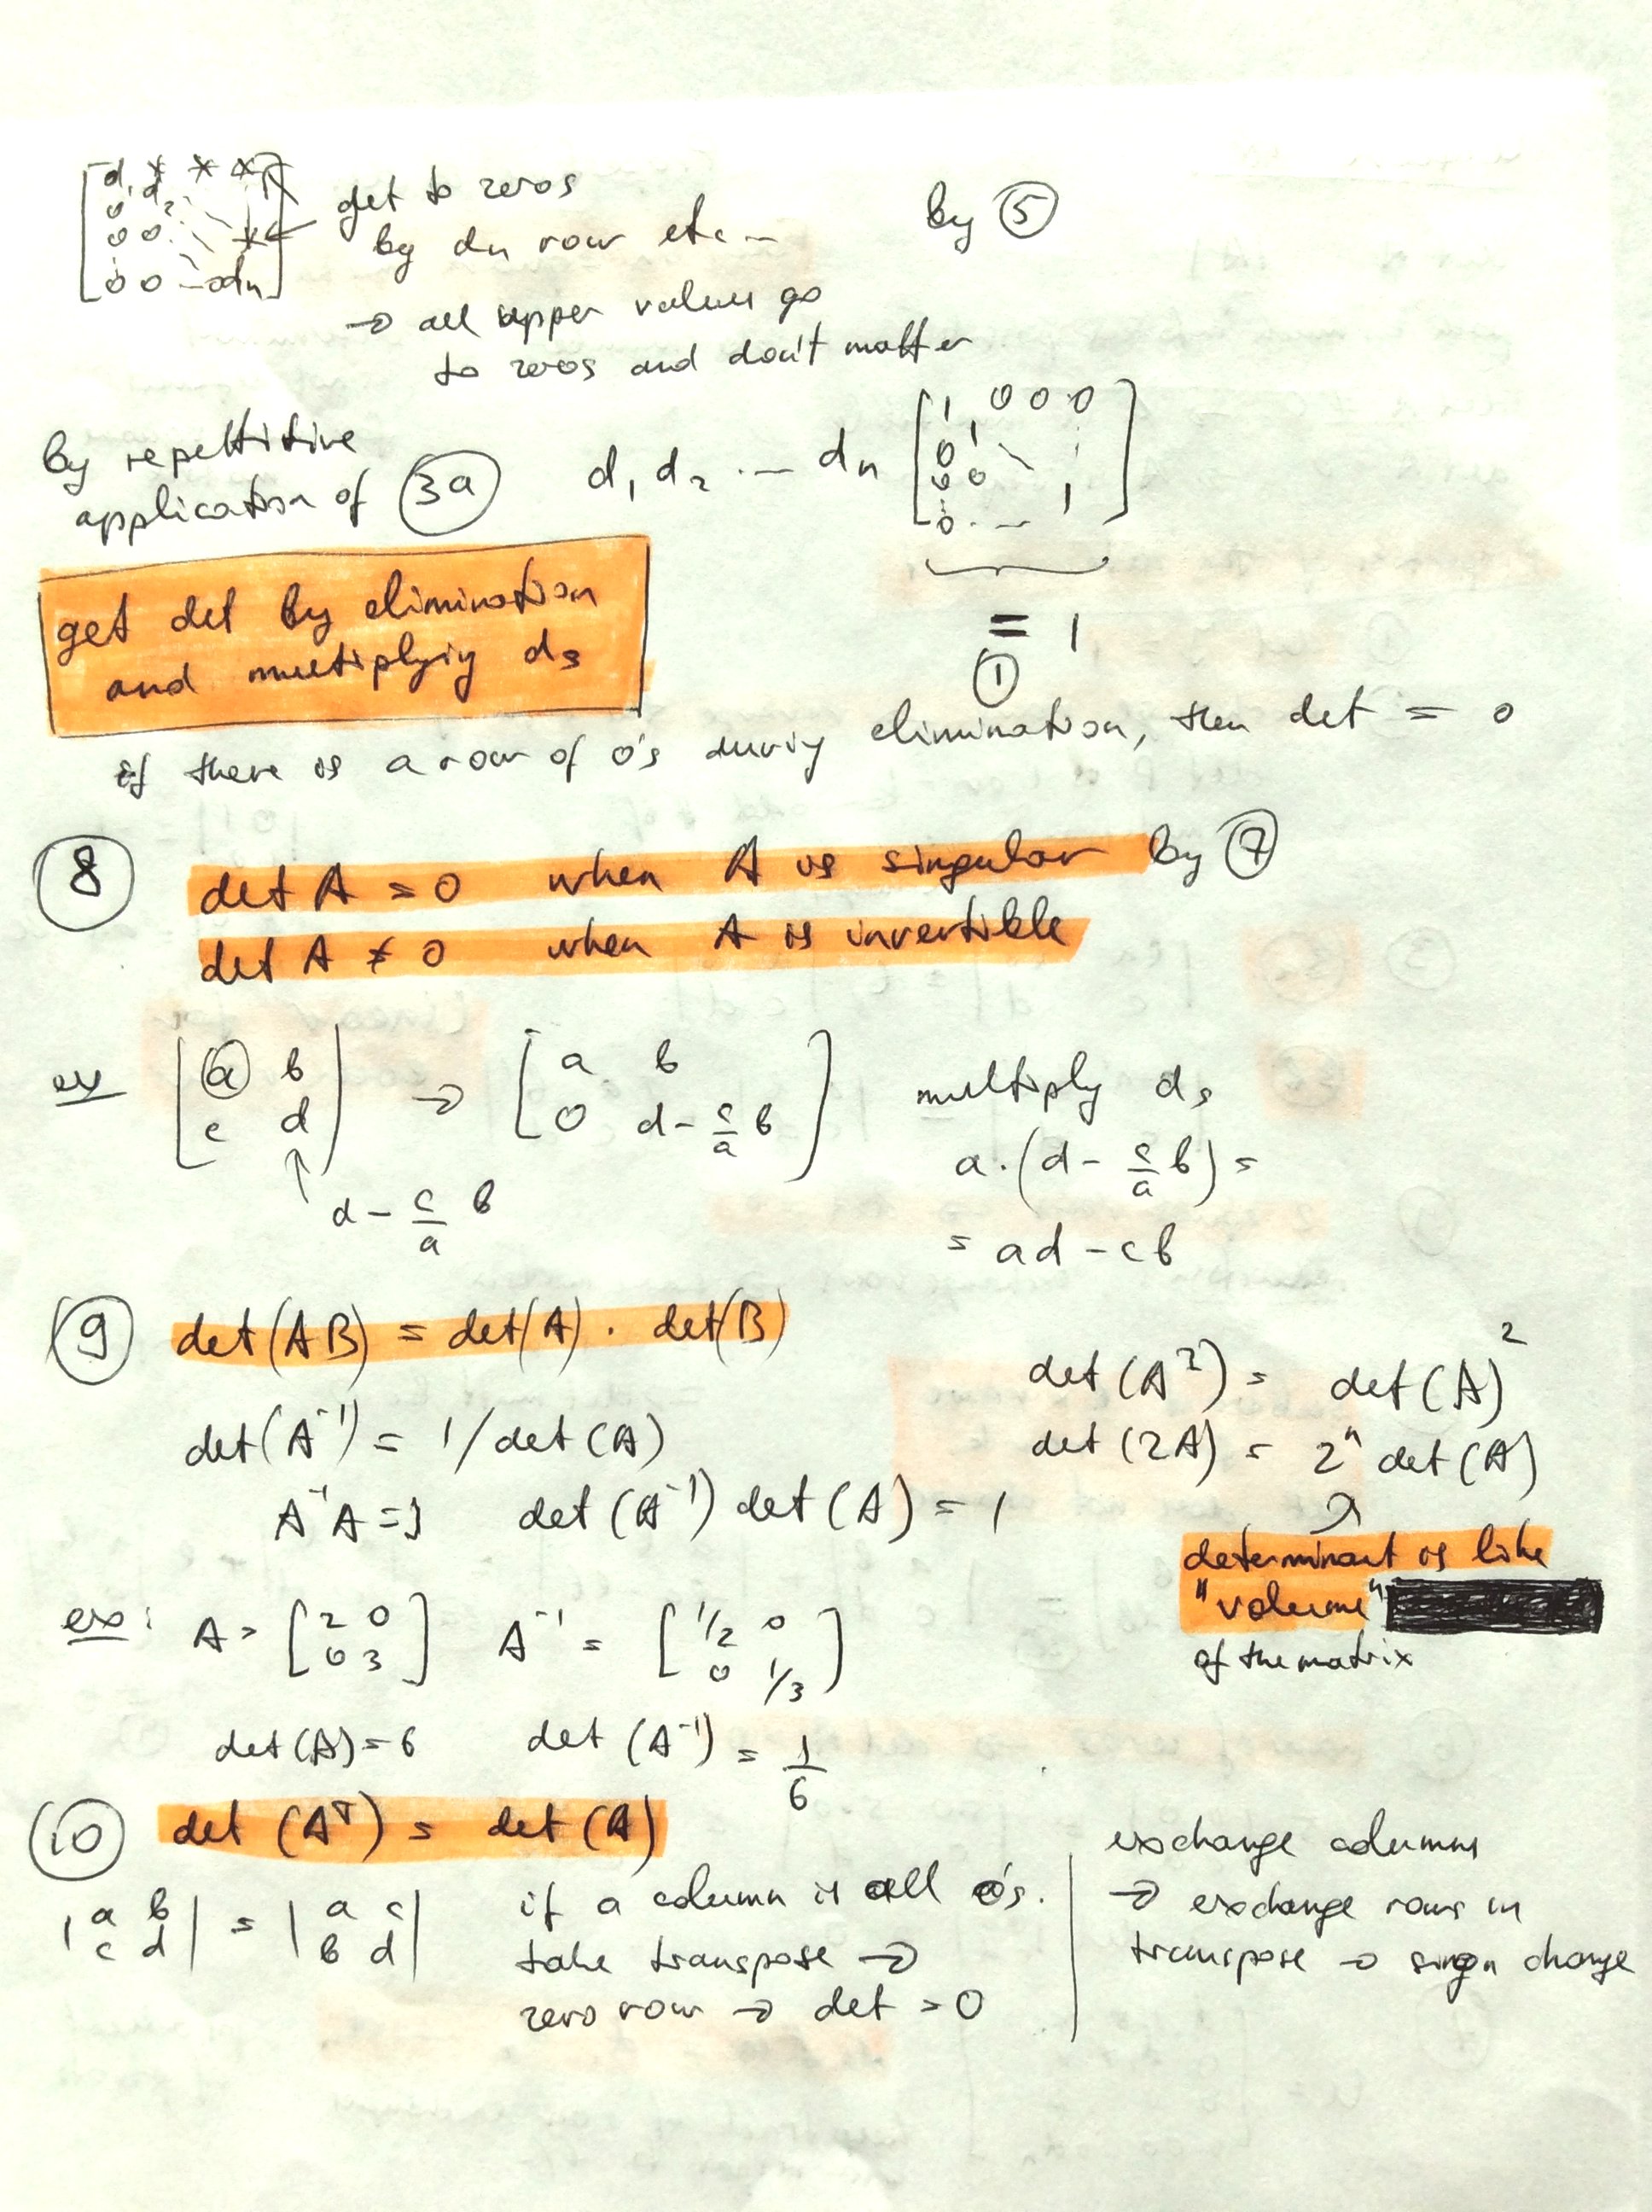 [ d₁ * * * ]
[ 0 d₂ ]
[ 0 0 * ]
[ 0 0 ... dn ]
get to zeros
by dn row etc...
by ⑤
→ all upper values go
to zeros and don't matter
by repettitive
application of (3a)
d₁ d₂ ... dn
[ 1 0 0 0 ]
[ 0 1 ]
[ 0 0 1 ]
[ 0 ... ]
= 1
①
get det by elimination
and multiplyig ds
if there is a row of 0's durig elimination, then det = 0
⑧ det A = 0 when A is singular by ⑦
det A ≠ 0 when A is invertible
ex [ a b ] → [ a b ]
[ c d ] [ 0 d - c/a b ]
↑
d - c/a b
multiply ds
a · (d - c/a b) =
= ad - cb
⑨ det(AB) = det(A) · det(B)
det(A⁻¹) = 1/det(A)
A⁻¹A = I det(A⁻¹) det(A) = 1
det(A²) = det(A)²
det(2A) = 2ⁿ det(A)
determinant is like
"volume"
of the matrix
ex: A = [ 2 0 ] A⁻¹ = [ 1/2 0 ]
[ 0 3 ] [ 0 1/3 ]
det(A) = 6 det(A⁻¹) = 1/6
⑩ det(Aᵀ) = det(A)
| a b | = | a c |
| c d | | b d |
if a column is all 0's.
take transpose →
zero row → det = 0
exchange columns
→ exchange rows in
transpose → sign change